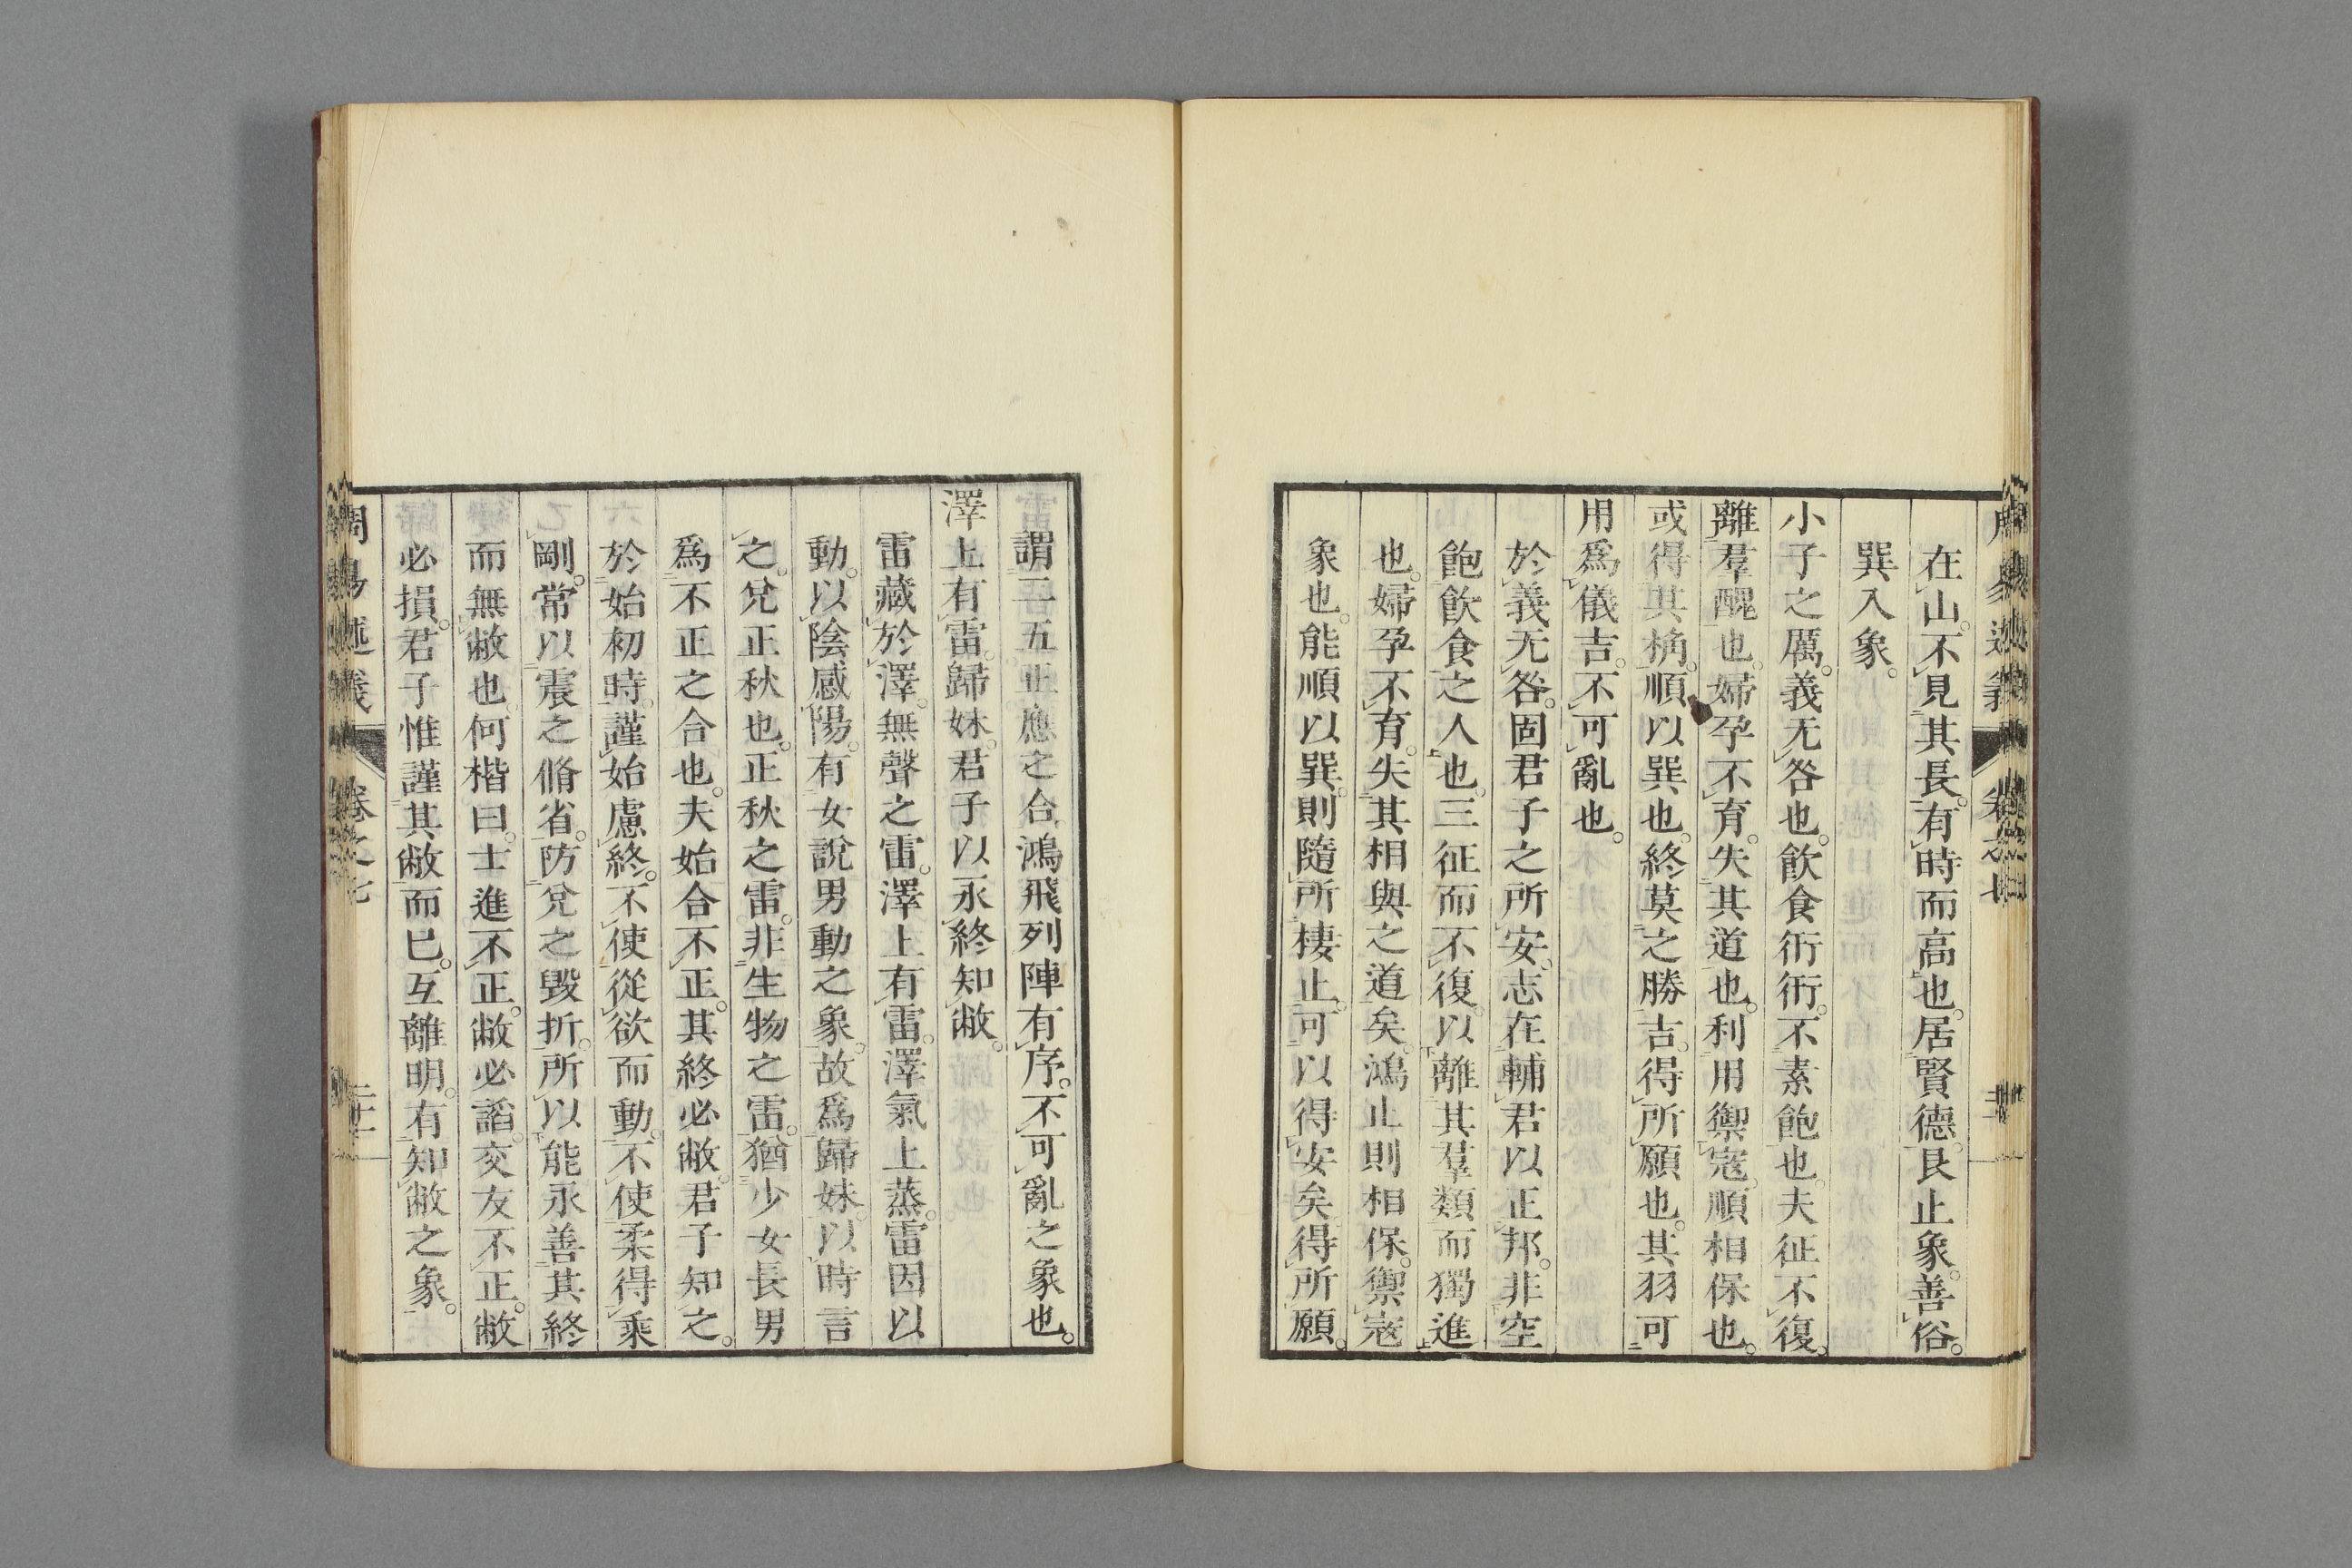 在山。不見其長。有時而高也。居賢德。艮止象。善俗。
巽入象。
小子之厲。義无咎也。飲食衎衎。不素飽也。夫征不復。
離羣醜也。婦孕不育。失其道也。利用禦寇。順相保也。
或得其桷。順以巽也。終莫之勝吉。得所願也。其羽可
用爲儀吉。不可亂也。
於義无咎。固君子之所安。志在輔君以正邦。非空
飽飲食之人也。三征而不復。以離其羣類而獨進
也。婦孕不育。失其相與之道矣。鴻止則相保。禦寇
象也。能順以巽。則隨所棲止。可以得安矣。得所願。
謂二五正應之合。鴻飛列陣有序。不可亂之象也。
澤上有雷。歸妹。君子以永終知敝。
雷藏於澤。無聲之雷。澤上有雷。澤氣上蒸。雷因以
動。以陰感陽。有女說男動之象。故爲歸妹。以時言
之。兌正秋也。正秋之雷。非生物之雷。猶少女長男
爲不正之合也。夫始合不正。其終必敝。君子知之。
於始初時。謹始慮終。不使從欲而動。不使柔得乘
剛。常以震之脩省。防兌之毀折。所以能永善其終
而無敝也。何楷曰。士進不正。敝必謟。交友不正。敝
必損。君子惟謹其敝而已。互離明。有知敝之象。
周易述義 卷之七